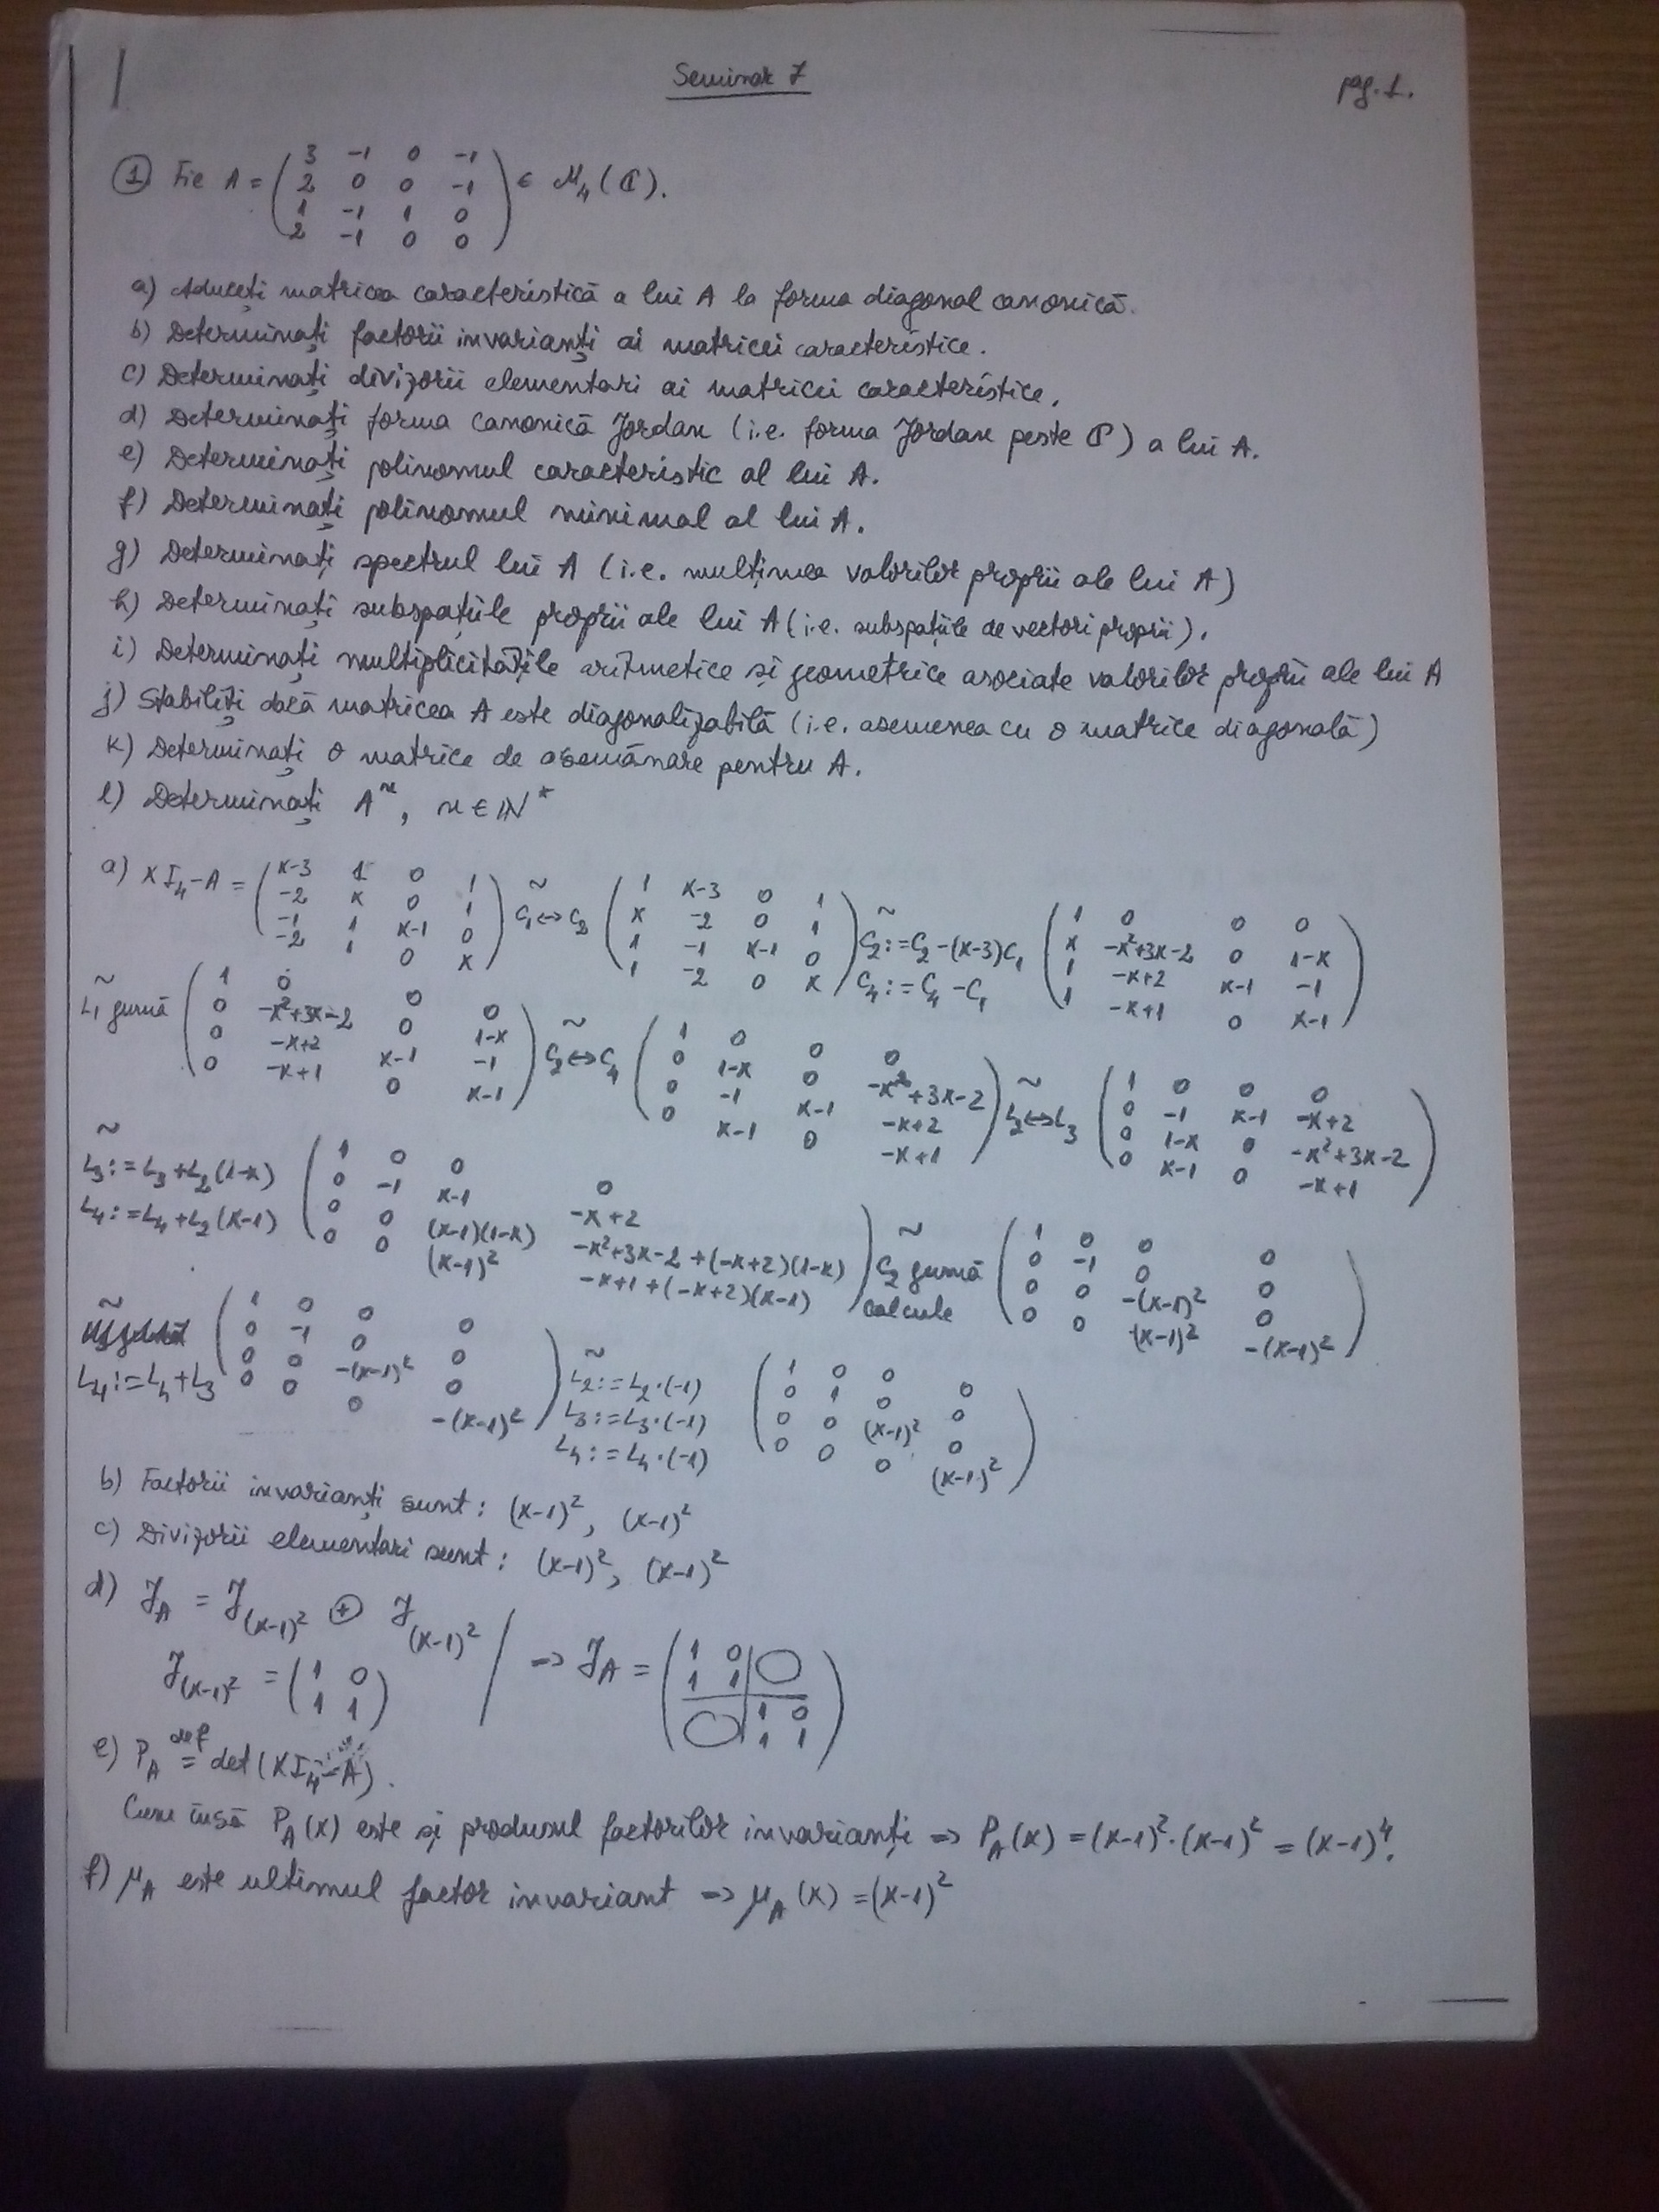 Seminar 7
pag. 1.
① Fie A = (3 -1 0 -1; 2 0 0 -1; 1 -1 1 0; 2 -1 0 0) ∈ M₄(ℂ).
a) Aduceți matricea caracteristică a lui A la forma diagonal canonică.
b) Determinați factorii invarianți ai matricei caracteristice.
c) Determinați divizorii elementari ai matricei caracteristice.
d) Determinați forma canonică Jordan (i.e. forma Jordan peste ℂ) a lui A.
e) Determinați polinomul caracteristic al lui A.
f) Determinați polinomul minimal al lui A.
g) Determinați spectrul lui A (i.e. mulțimea valorilor proprii ale lui A)
h) Determinați subspațiile proprii ale lui A (i.e. subspațiile de vectori proprii).
i) Determinați multiplicitățile aritmetice și geometrice asociate valorilor proprii ale lui A
j) Stabiliți dacă matricea A este diagonalizabilă (i.e. asemenea cu o matrice diagonală)
k) Determinați o matrice de asemănare pentru A.
l) Determinați Aⁿ, n ∈ ℕ*
a) XI₄-A = (x-3 1 0 1; -2 x 0 1; -1 1 x-1 0; -2 1 0 x) ~ C₁↔C₂ (1 x-3 0 1; x -2 0 1; 1 -1 x-1 0; 1 -2 0 x) ~ C₂:=C₂-(x-3)C₁ C₄:=C₄-C₁ (1 0 0 0; x -x²+3x-2 0 1-x; 1 -x+2 x-1 -1; 1 -x+1 0 x-1)
~ L₁ gumă (1 0 0 0; 0 -x²+3x-2 0 1-x; 0 -x+2 x-1 -1; 0 -x+1 0 x-1) ~ C₂↔C₄ (1 0 0 0; 0 1-x 0 -x²+3x-2; 0 -1 x-1 -x+2; 0 x-1 0 -x+1) ~ L₂↔L₃ (1 0 0 0; 0 -1 x-1 -x+2; 0 1-x 0 -x²+3x-2; 0 x-1 0 -x+1)
~ L₃:=L₃+L₂(1-x) L₄:=L₄+L₂(x-1) (1 0 0 0; 0 -1 x-1 -x+2; 0 0 (x-1)(1-x) -x²+3x-2+(-x+2)(1-x); 0 0 (x-1)² -x+1+(-x+2)(x-1)) ~ C₂ gumă calcule (1 0 0 0; 0 -1 0 0; 0 0 -(x-1)² 0; 0 0 (x-1)² -(x-1)²)
~ L₄:=L₄+L₃ (1 0 0 0; 0 -1 0 0; 0 0 -(x-1)² 0; 0 0 0 -(x-1)²) ~ L₂:=L₂·(-1) L₃:=L₃·(-1) L₄:=L₄·(-1) (1 0 0 0; 0 1 0 0; 0 0 (x-1)² 0; 0 0 0 (x-1)²)
b) Factorii invarianți sunt: (x-1)², (x-1)²
c) Divizorii elementari sunt: (x-1)², (x-1)²
d) J_A = J_(x-1)² ⊕ J_(x-1)²
J_(x-1)² = (1 0; 1 1) | => J_A = (1 0 | 0; 1 1 |; 0 | 1 0; | 1 1)
e) P_A def= det(XI₄-A).
Cum însă P_A(x) este și produsul factorilor invarianți => P_A(x) = (x-1)²·(x-1)² = (x-1)⁴.
f) μ_A este ultimul factor invariant => μ_A(x) = (x-1)²